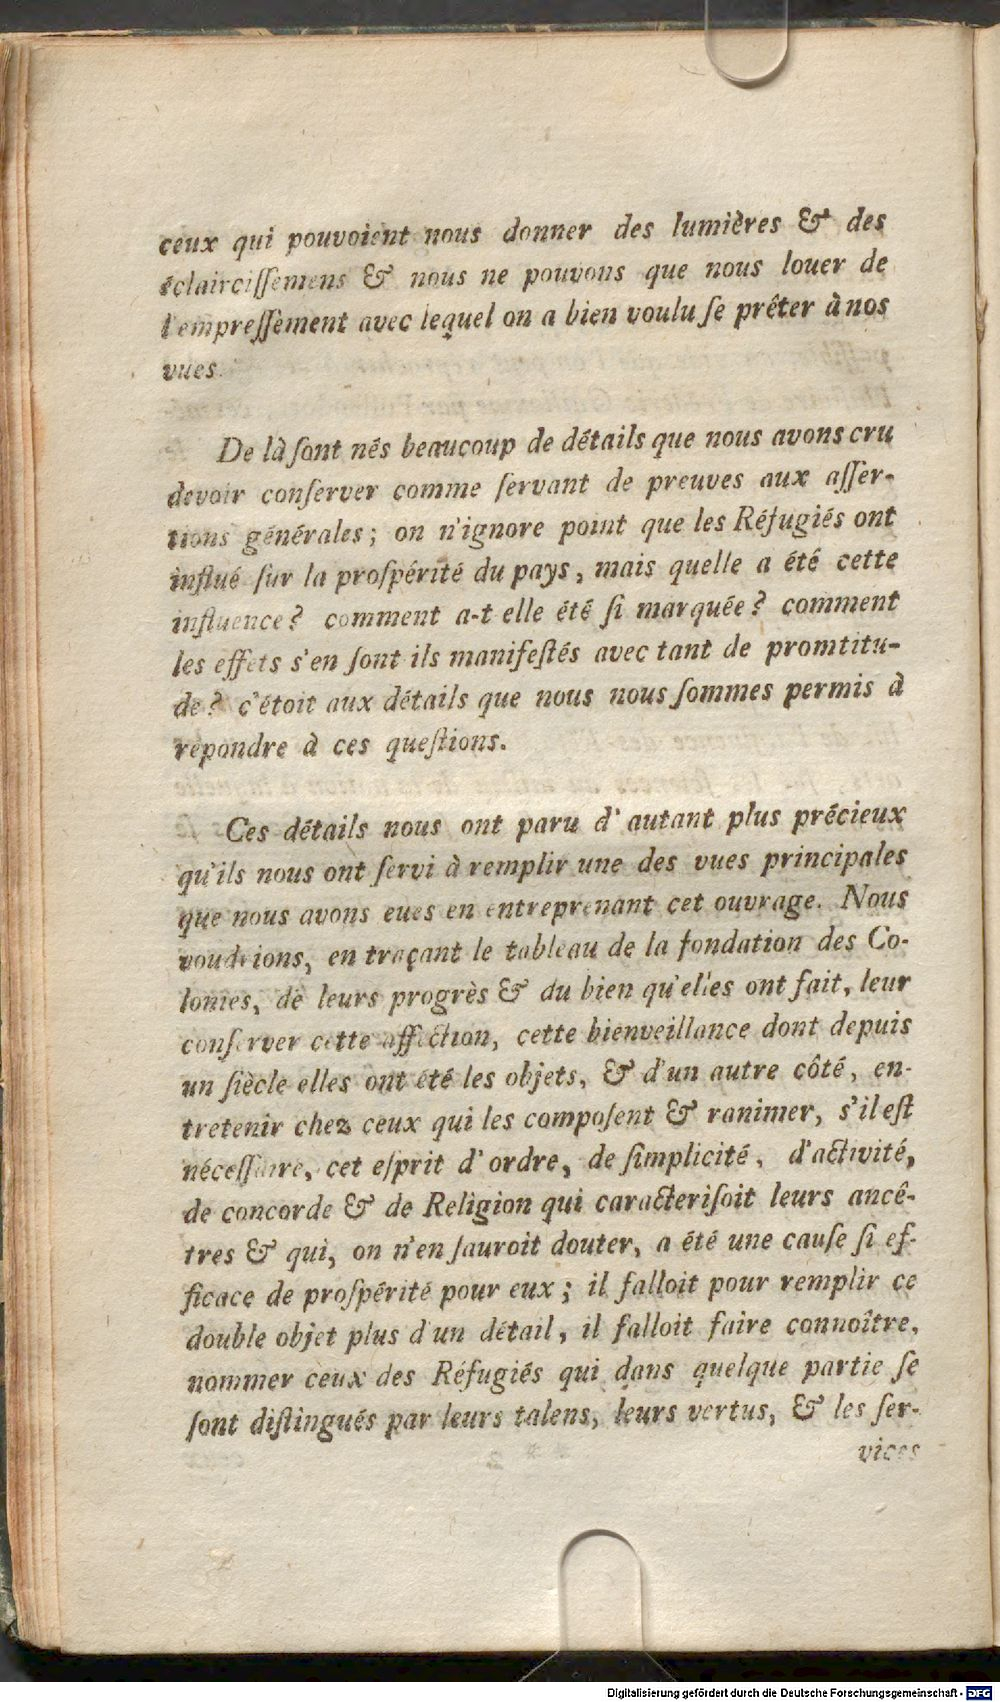 ceux qui pouvoient nous donner des lumières & des
éclairciſſemens & nous ne pouvons que nous louer de
l'empreſſement avec lequel on a bien voulu ſe prêter à nos
vues.
De là ſont nés beaucoup de détails que nous avons cru
devoir conſerver comme ſervant de preuves aux aſſer-
tions générales; on n'ignore point que les Réfugiés ont
influé ſur la proſpérité du pays, mais quelle a été cette
influence? comment a-t elle été ſi marquée? comment
les effets s'en ſont ils manifeſtés avec tant de promtitu-
de? c'étoit aux détails que nous nous ſommes permis à
répondre à ces queſtions.
Ces détails nous ont paru d'autant plus précieux
qu'ils nous ont ſervi à remplir une des vues principales
que nous avons eues en entreprenant cet ouvrage. Nous
voudrions, en traçant le tableau de la fondation des Co-
lonies, de leurs progrès & du bien qu'elles ont fait, leur
conſerver cette affection, cette bienveillance dont depuis
un ſiècle elles ont été les objets, & d'un autre côté, en-
tretenir chez ceux qui les compoſent & ranimer, s'il eſt
néceſſaire, cet eſprit d'ordre, de ſimplicité, d'activité,
de concorde & de Religion qui caracteriſoit leurs ancê-
tres & qui, on n'en ſauroit douter, a été une cauſe ſi ef-
ficace de proſpérité pour eux; il falloit pour remplir ce
double objet plus d'un détail, il falloit faire connoître,
nommer ceux des Réfugiés qui dans quelque partie ſe
ſont diſtingués par leurs talens, leurs vertus, & les ſer-
vices
Digitalisierung gefördert durch die Deutsche Forschungsgemeinschaft - DFG